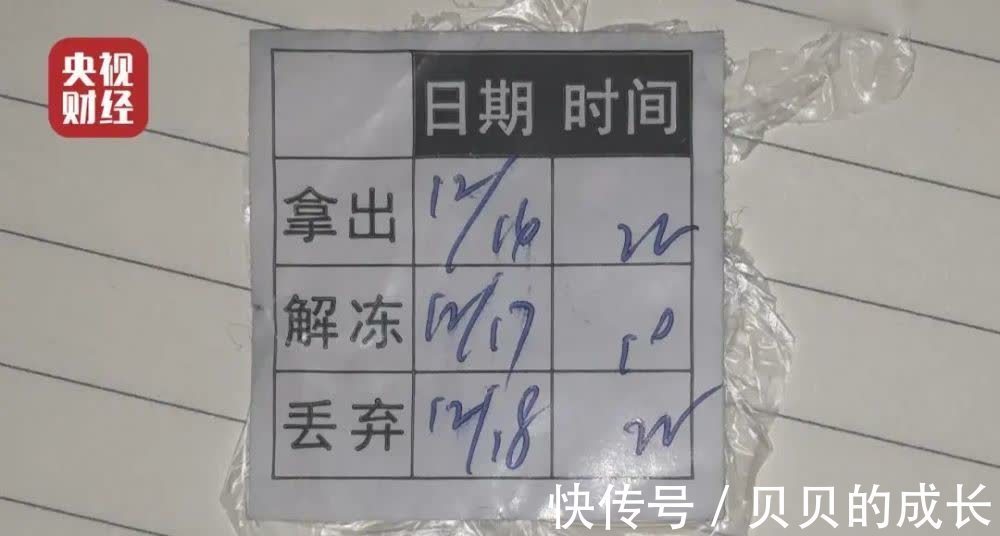 央视
财经
日期 时间
拿出 12/16 22
解冻 12/17 10
丢弃 12/18 22
快传号 / 贝贝的成长